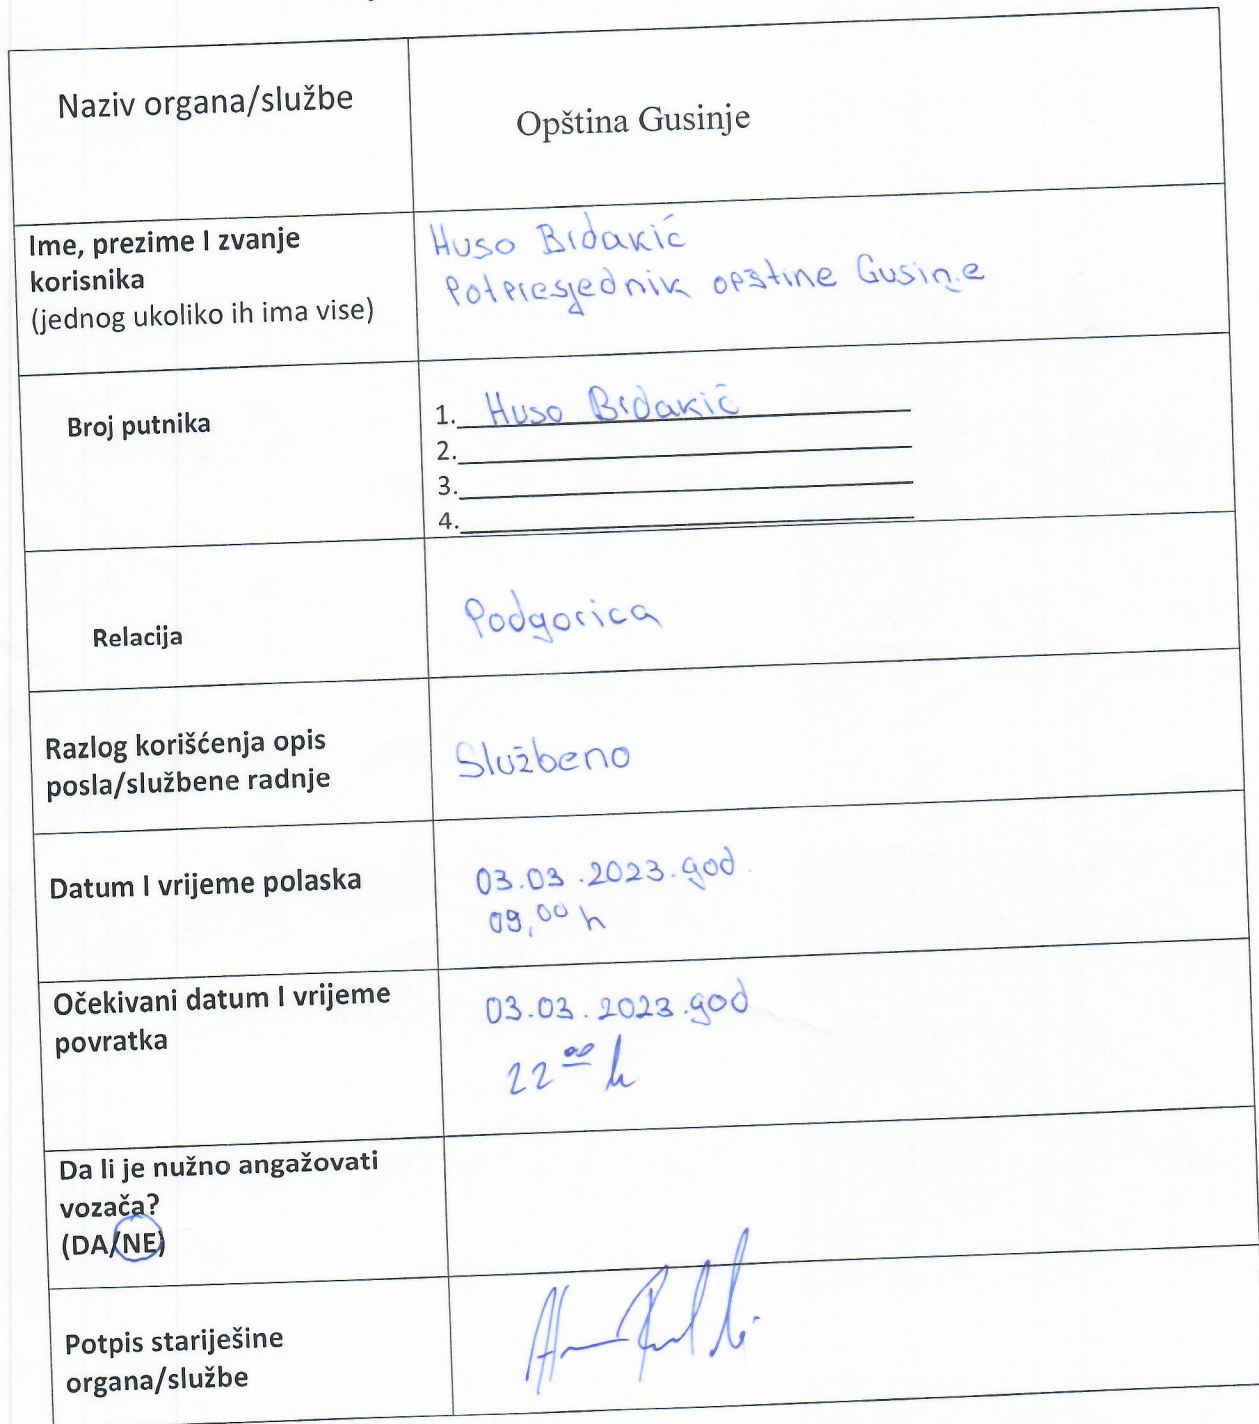 Naziv organa/službe
Opština Gusinje
Ime, prezime I zvanje
korisnika
(jednog ukoliko ih ima vise)
Huso Brdakić
Potpresjednik opštine Gusinje
Broj putnika
1. Huso Brdakić
2.
3.
4.
Relacija
Podgorica
Razlog korišćenja opis
posla/službene radnje
Službeno
Datum I vrijeme polaska
03.03.2023.god.
09,00 h
Očekivani datum I vrijeme
povratka
03.03.2023.god
22 00 h
Da li je nužno angažovati
vozača?
(DA/NE)
Potpis starješine
organa/službe